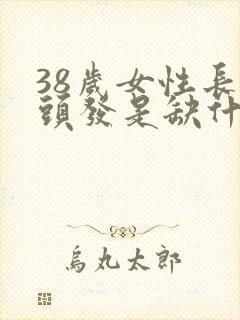 38歲女性長
頭發是缺什
烏丸太郎